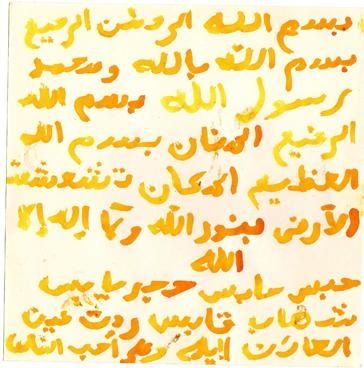 بسم الله الرحمن الرحيم
بسم الله بالله ومحمد
رسول الله بسم الله
الرحيم المنان بسم الله
العظيم الحنان تشعشعت
الأرض بنور الله ولا إله إلا
الله
حبس حابس وحجر يابس
شهاب قابس ردت عين
العائن إليه وعلى أحب الناس